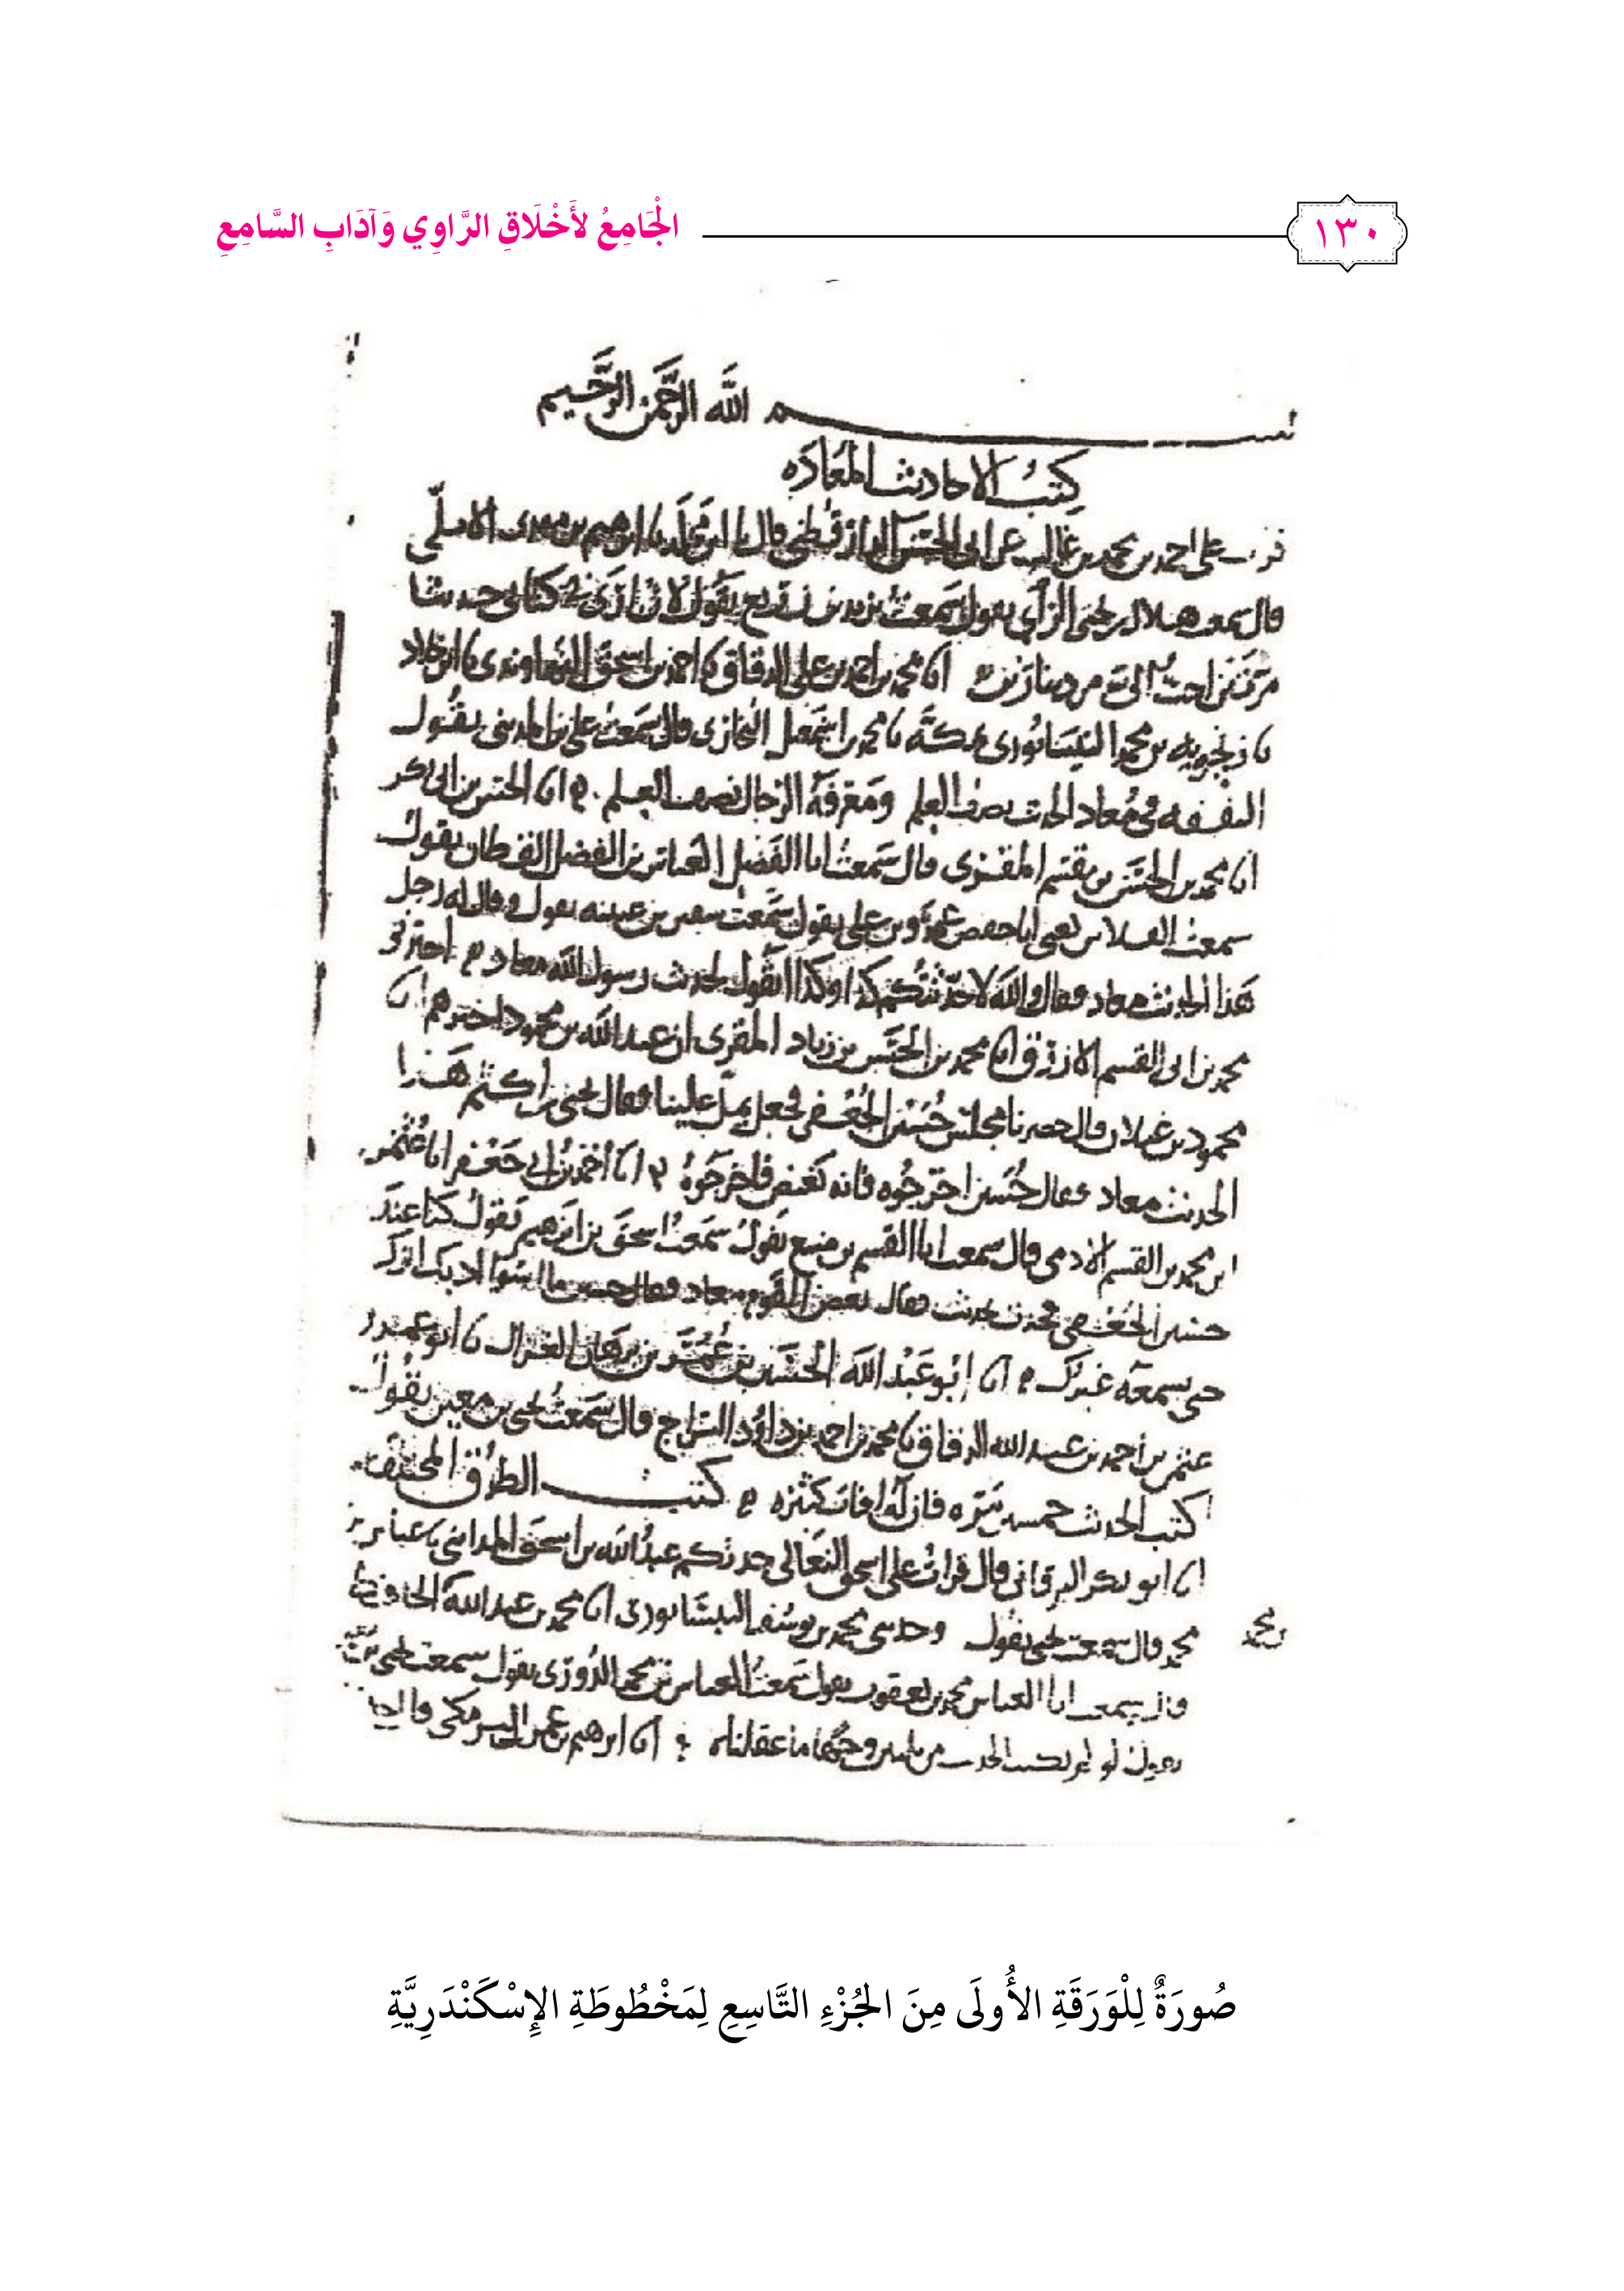 الْجَامِعُ لأَخْلَاقِ الرَّاوِي وَآدَابِ السَّامِعِ
١٣٠
بسم الله الرحمن الرحيم
كتب الاحاديث المعاده
على احمد بن محمد بن غالب عن ابي الحسن الدارقطني قال ابن مخلد ابرهيم بن مهدى الابلى
قال سمعت هلال بن يحيى الراي يقول سمعت يزيد بن زريع يقول لان ارى في كتابى حديثا
مرتين احب الى من دينارين انا محمد بن احمد بن على الدقاق نا احمد بن اسحق النهاوندى نا ابن خلاد
نا زنجويه بن محمد النيسابورى بمكة نا محمد بن اسمعيل البخارى قال سمعت على بن المدينى يقول
التفقه في معاد الحديث نصف العلم ومعرفة الرجال نصف العلم انا الحسن بن ابى بكر
انا محمد بن الحسن بن مقسم المقرى قال سمعت ابا الفضل العباس بن الفضل القطان يقول
سمعت الفلاس يعنى ابا حفص عمرو بن على يقول سمعت سفين بن عيينه يقول وقال له رجل
هذا الحديث معاد فقال والله لا حدثتكم كذا وكذا اتقول لحديث رسول الله معاد اخبرنى
محمد بن ابى القسم الازرق انا محمد بن الحسن بن زياد المقرى ان عبد الله بن محمود اخبرهم انا
محمود بن غيلان قال حضرنا مجلس حسين الجعفى فجعل يمل علينا فقال يحيى بن اكثم هذا
الحديث معاد فقال حسين اخرجوه فانه بغيض فاخرجوه انا احمد بن ابى جعفر انا عثمن
ابن محمد بن القسم الادمى قال سمعت ابا القسم بن منيع يقول سمعت اسحق بن ابرهيم يقول كنا عند
حسين الجعفى فحدث بحديث فقال بعض القوم معاد فقال حسين ما اسوا ادبك اترك
حتى يسمعه غيرك انا ابو عبد الله الحسين بن عمر بن برهان الغزال نا ابو عمرو
عثمن بن احمد بن عبد الله الدقاق نا محمد بن احمد بن داود السراج قال سمعت يحيى بن معين يقول
اكتب الحديث خمسين مره فان له افات كثيره كتب الطرق المختلفه
انا ابو بكر البرقانى قال قرات على اسحق النعالى حدثكم عبد الله بن اسحق المداينى نا عباس بن
محمد قال سمعت يحيى يقول وحدثنى محمد بن يوسف النيسابورى انا محمد بن عبد الله الحافظ
قال سمعت ابا العباس محمد بن يعقوب يقول سمعت العباس بن محمد الدورى يقول سمعت يحيى بن
يقول لو لم نكتب الحديث من وجها ما عقلناه انا ابرهيم بن عمر البرمكى
صُورَةٌ لِلْوَرَقَةِ الأُولَى مِنَ الجُزْءِ التَّاسِعِ لِمَخْطُوطَةِ الإِسْكَنْدَرِيَّةِ